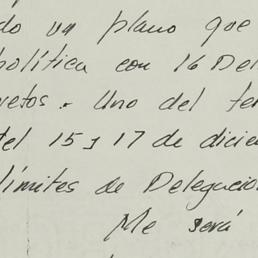 do un plano que
política con 16 Del
retos. Uno del te
tel 15 y 17 de dicie
límites de Delegacio
Me será